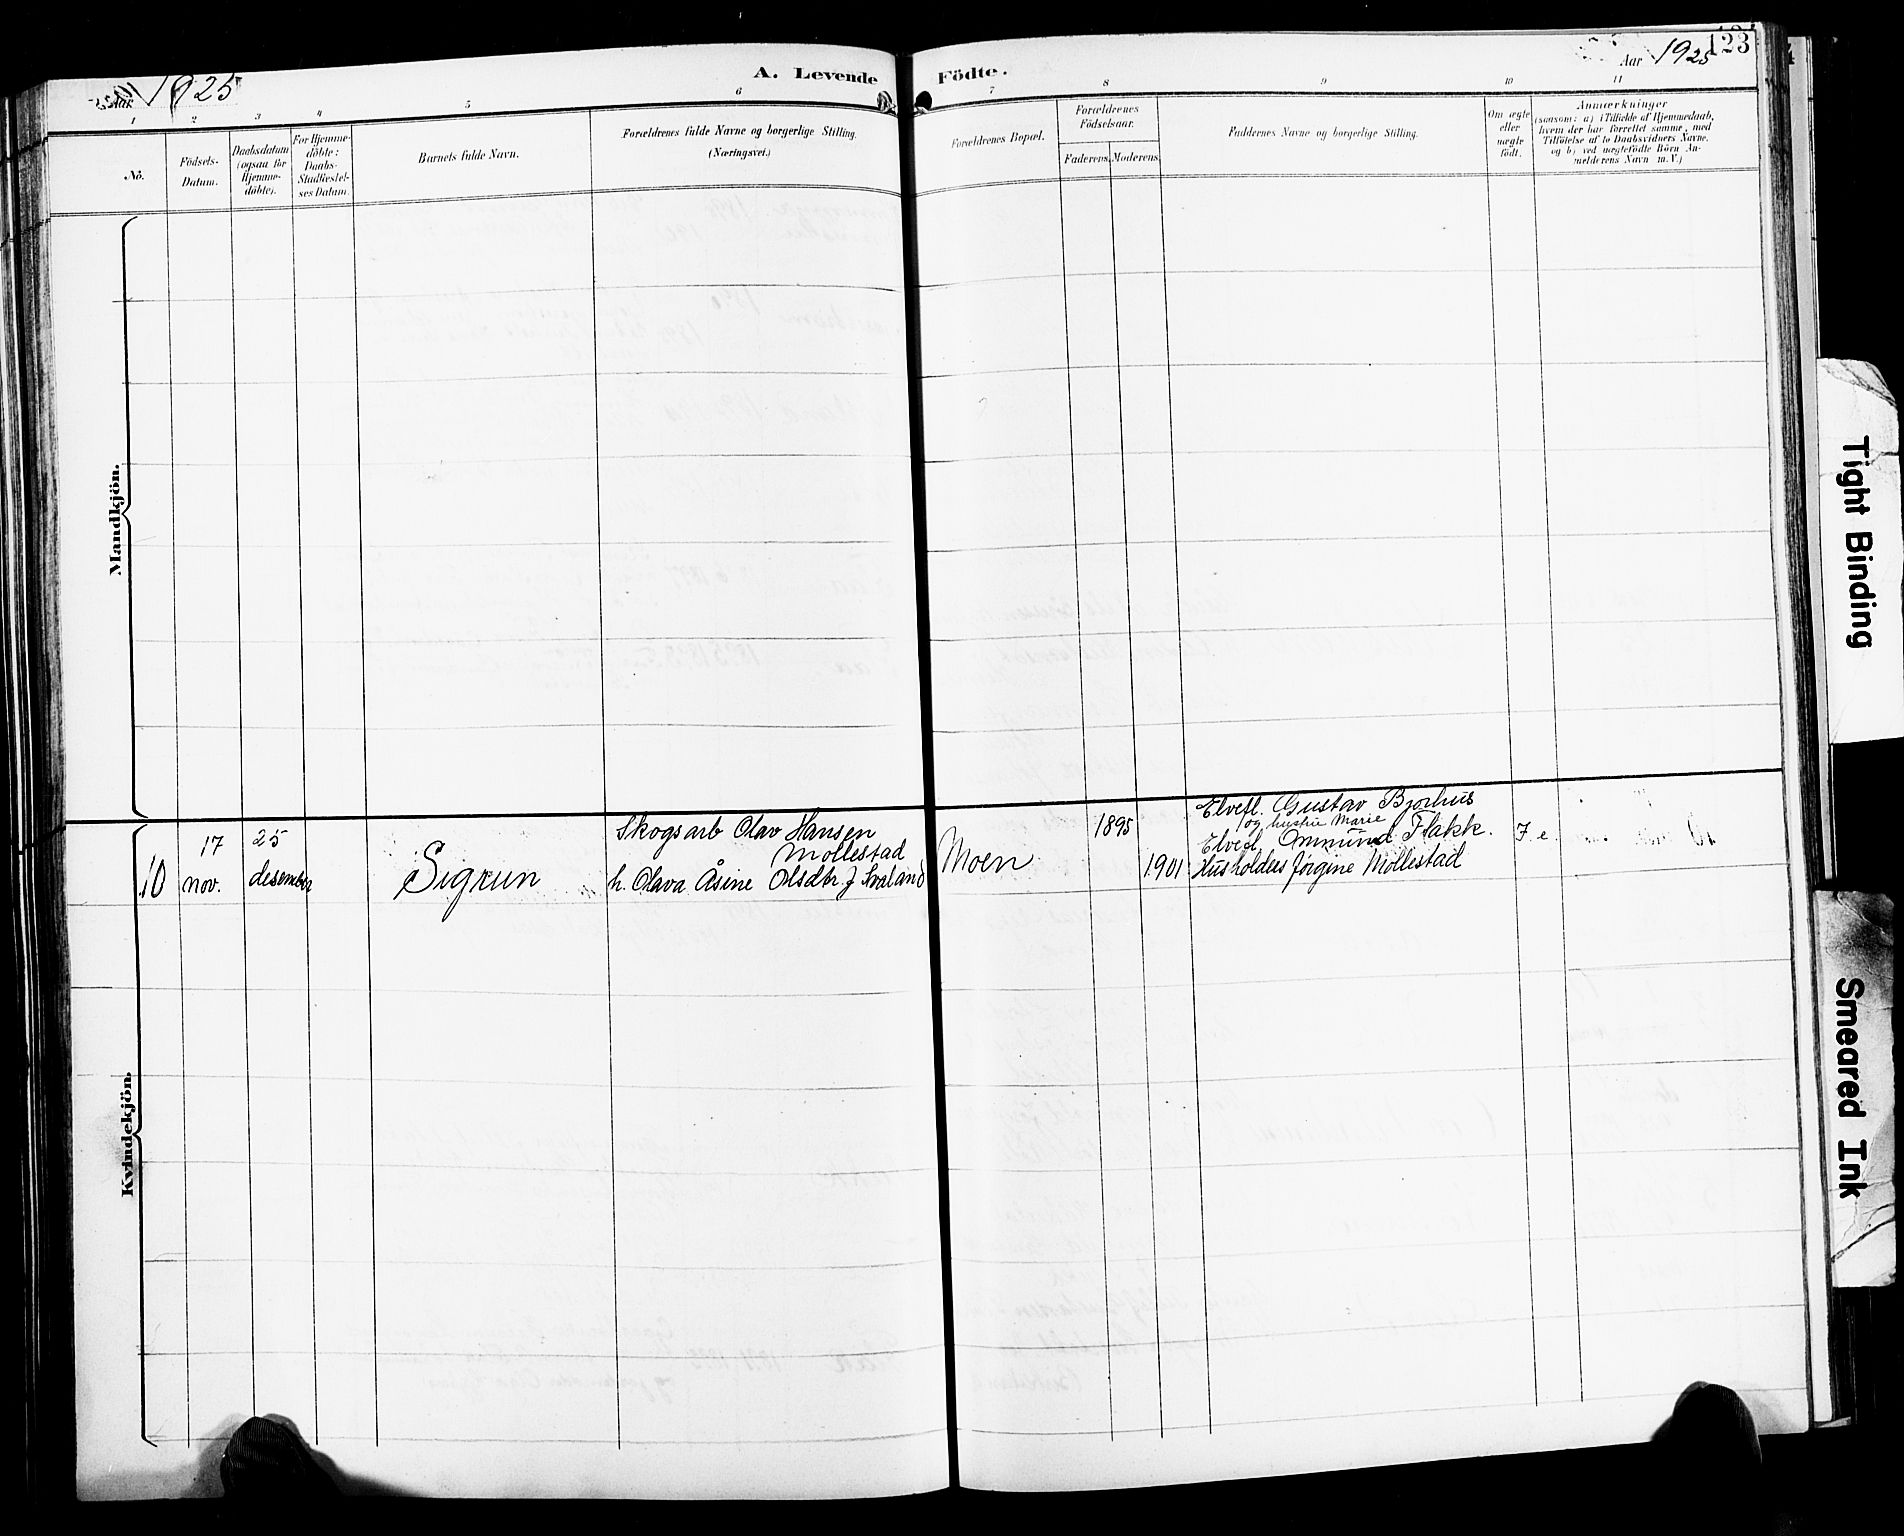 Aar 1925
A. Levende Födte.
Aar 1925
123
1 2 3 4 5 6 7 8 9 10 11
No.
Födsels-
Datum.
Daabsdatum
(ogsaa for
Hjemme-
döbte).
For Hjemme-
döbte:
Daabs-
Stadfæstel-
ses Datum.
Barnets fulde Navn.
Forældrenes fulde Navne og borgerlige Stilling.
(Næringsvei.)
Forældrenes Bopæl.
Forældrenes
Födselsaar.
Faderens. Moderens.
Faddernes Navne og borgerlige Stilling.
Om ægte
eller
uægte
födt.
Anmærkninger
(saasom: a) i Tilfælde af Hjemmedaab,
hvem der har forrettet samme, med
Tilföielse af to Daabsvidners Navne,
og b) ved uægtefödte Börn An-
melderens Navn m. V.)
Mandkjön.
Kvindekjön.
10
17
nov.
25
desember
Sigrun
Skogsarb Olav Hansen
Mollestad
h. Olava Åsine Olsdtr f Svaland
Moen
1895
1901
Elvefl. Gustav Bjorhus
og hustru Marie
Elved Ommund Flakk.
Husholders Jørgine Mollestad
e.
Tight Binding
Smeared Ink